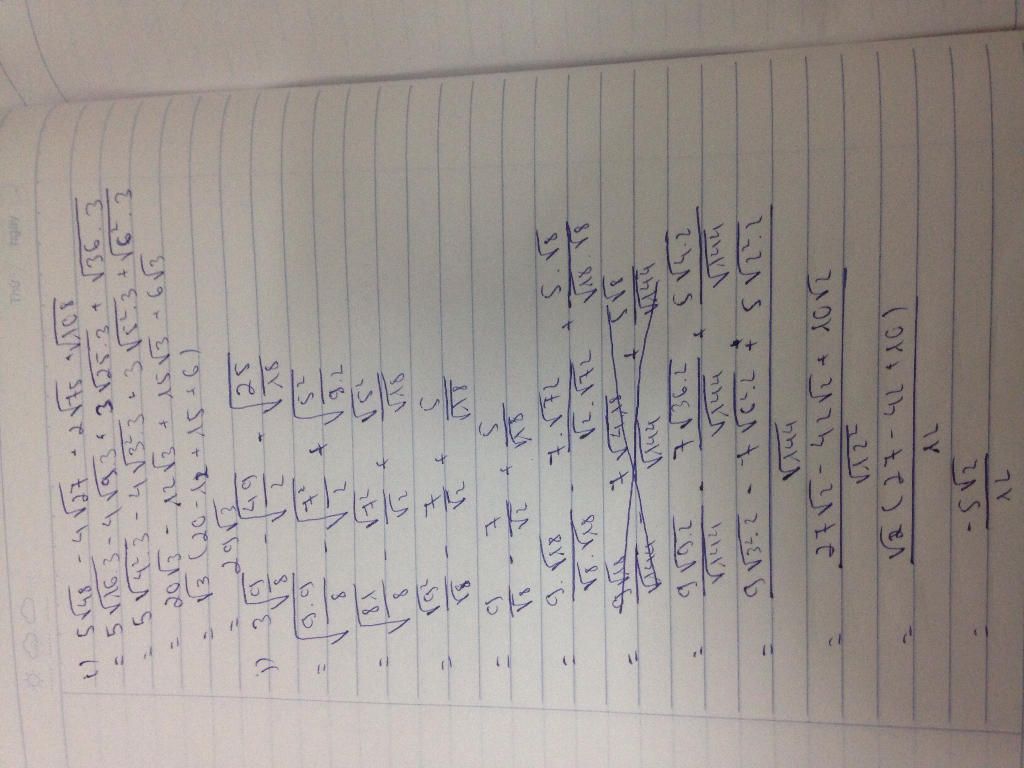 Thứ
Ngày
i) 5√48 - 4√27 + 2√75 + √108
= 5√16.3 - 4√9.3 + 3√25.3 + √36.3
= 5√4².3 - 4√3².3 + 3√5².3 + √6².3
= 20√3 - 12√3 + 15√3 + 6√3
= √3 (20 - 12 + 15 + 6)
= 29√3
j) 3√9/√8 - √49/√2 + √25/√18
= √(9.9/8) - √(7²/2) + √(5²/9.2)
= √(81/8) - √7²/√2 + √5²/√18
= √9²/√8 - 7/√2 + 5/√18
= 9/√8 - 7/√2 + 5/√18
= 9.√18/√8.√18 - 7.√72/√2.√72 + 5.√8/√18.√8
= 9√18/√144 - 7√4.18/√144 + 5√8/√144
= 9√9.2/√144 - 7√36.2/√144 + 5√4.2/√144
= (9√3².2 - 7√6².2 + 5√2².2)/√144
= (27√2 - 42√2 + 10√2)/√12²
= √2 (27 - 42 + 10)/12
= -5√2/12